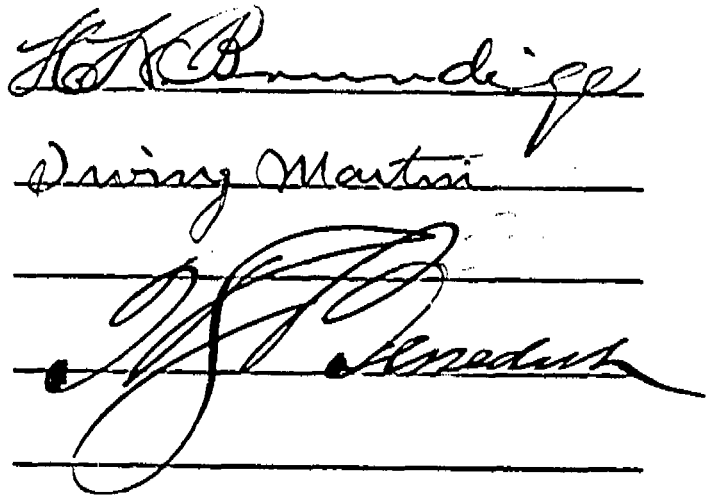 H K Brundige
Irving Martin
Benedict